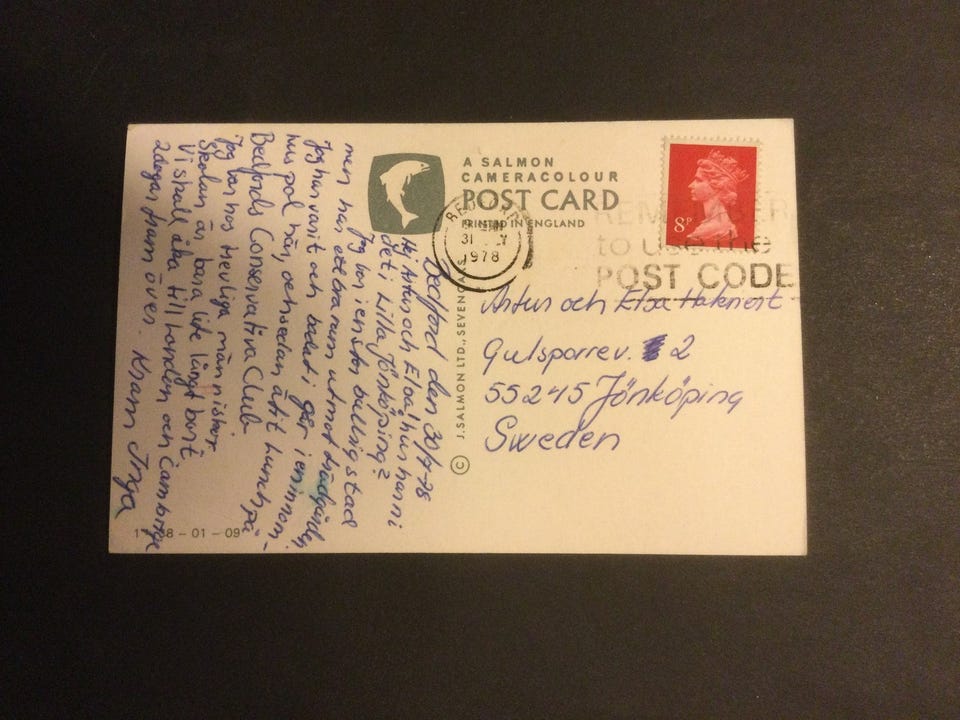 A SALMON
CAMERACOLOUR
POST CARD
PRINTED IN ENGLAND
© J. SALMON LTD., SEVENOAKS
8P
BEDFORD
31
1978
REMEMBER
to use the
POST CODE
Bedford den 30/7-78
Hej Artur och Elsa! hur har ni
det i Lilla Jönköping?
Jag bor i en stor bullrig stad
men har ett bra rum utmot trädgården
Jag har varit och badat i går i en innom-
hus pol här, och sedan ätit lunch på
Bedfords Conservativa Club.
Jag bor hos trevliga människor.
Skolan är bara lite långt bort.
Vi skall åka till London och Cambrige
2 dagar fram över. Kram Inga
Artur och Elsa
Gulsparrev. 2
55245 Jönköping
Sweden
8 - 01 - 09